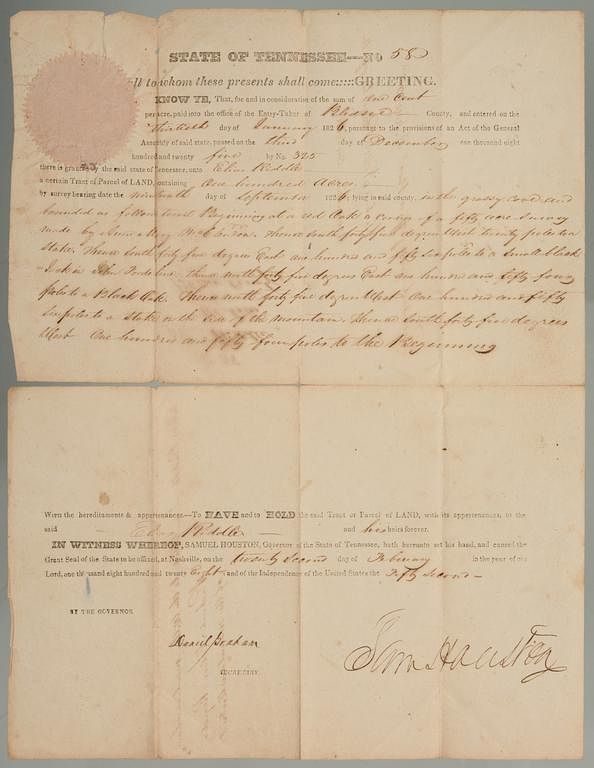 STATE OF TENNESSEE—No 58
ll to whom these presents shall come:::::GREETING.
KNOW YE, That, for and in consideration of the sum of one Cent
per acre, paid into the office of the Entry-Taker of Bledsoe County, and entered on the
thirtieth day of January 1826, pursuant to the provisions of an Act of the General
Assembly of said state, passed on the third day of December one thousand eight
hundred and twenty five by No. 325
there is granted by the said state of Tennessee, unto Elias Riddle
a certain Tract or Parcel of LAND, containing One hundred Acres
by survey bearing date the day of September 1826, lying in said county, in the grassy Cove and
bounded as follows to wit Beginning at a red Oak a corner of a fifty acre survey
made by M. thence South forty five degrees West twenty poles to a
Stake, thence South forty five degrees East one hundred and fifty six poles to a Small black
thence north forty five degrees East one hundred and fifty four
poles to a Black Oak, thence north forty five degrees West One hundred and fifty
six poles to a Stake on the side of the mountain, thence South forty five degrees
West One hundred and fifty four poles to the Beginning
WITH the hereditaments & appertenances—To HAVE and to HOLD the said Tract or Parcel of LAND, with its appertenances, to the
said Elias Riddle and his heirs forever.
IN WITNESS WHEREOF, SAMUEL HOUSTON, Governor of the State of Tennessee, hath hereunto set his hand, and caused the
Great Seal of the State to be affixed, at Nashville, on the twenty Second day of February in the year of our
Lord, one thousand eight hundred and twenty Eight and of the Independence of the United States the Fifty Second—
BY THE GOVERNOR
Daniel Graham
SECRETARY.
Sam Houston